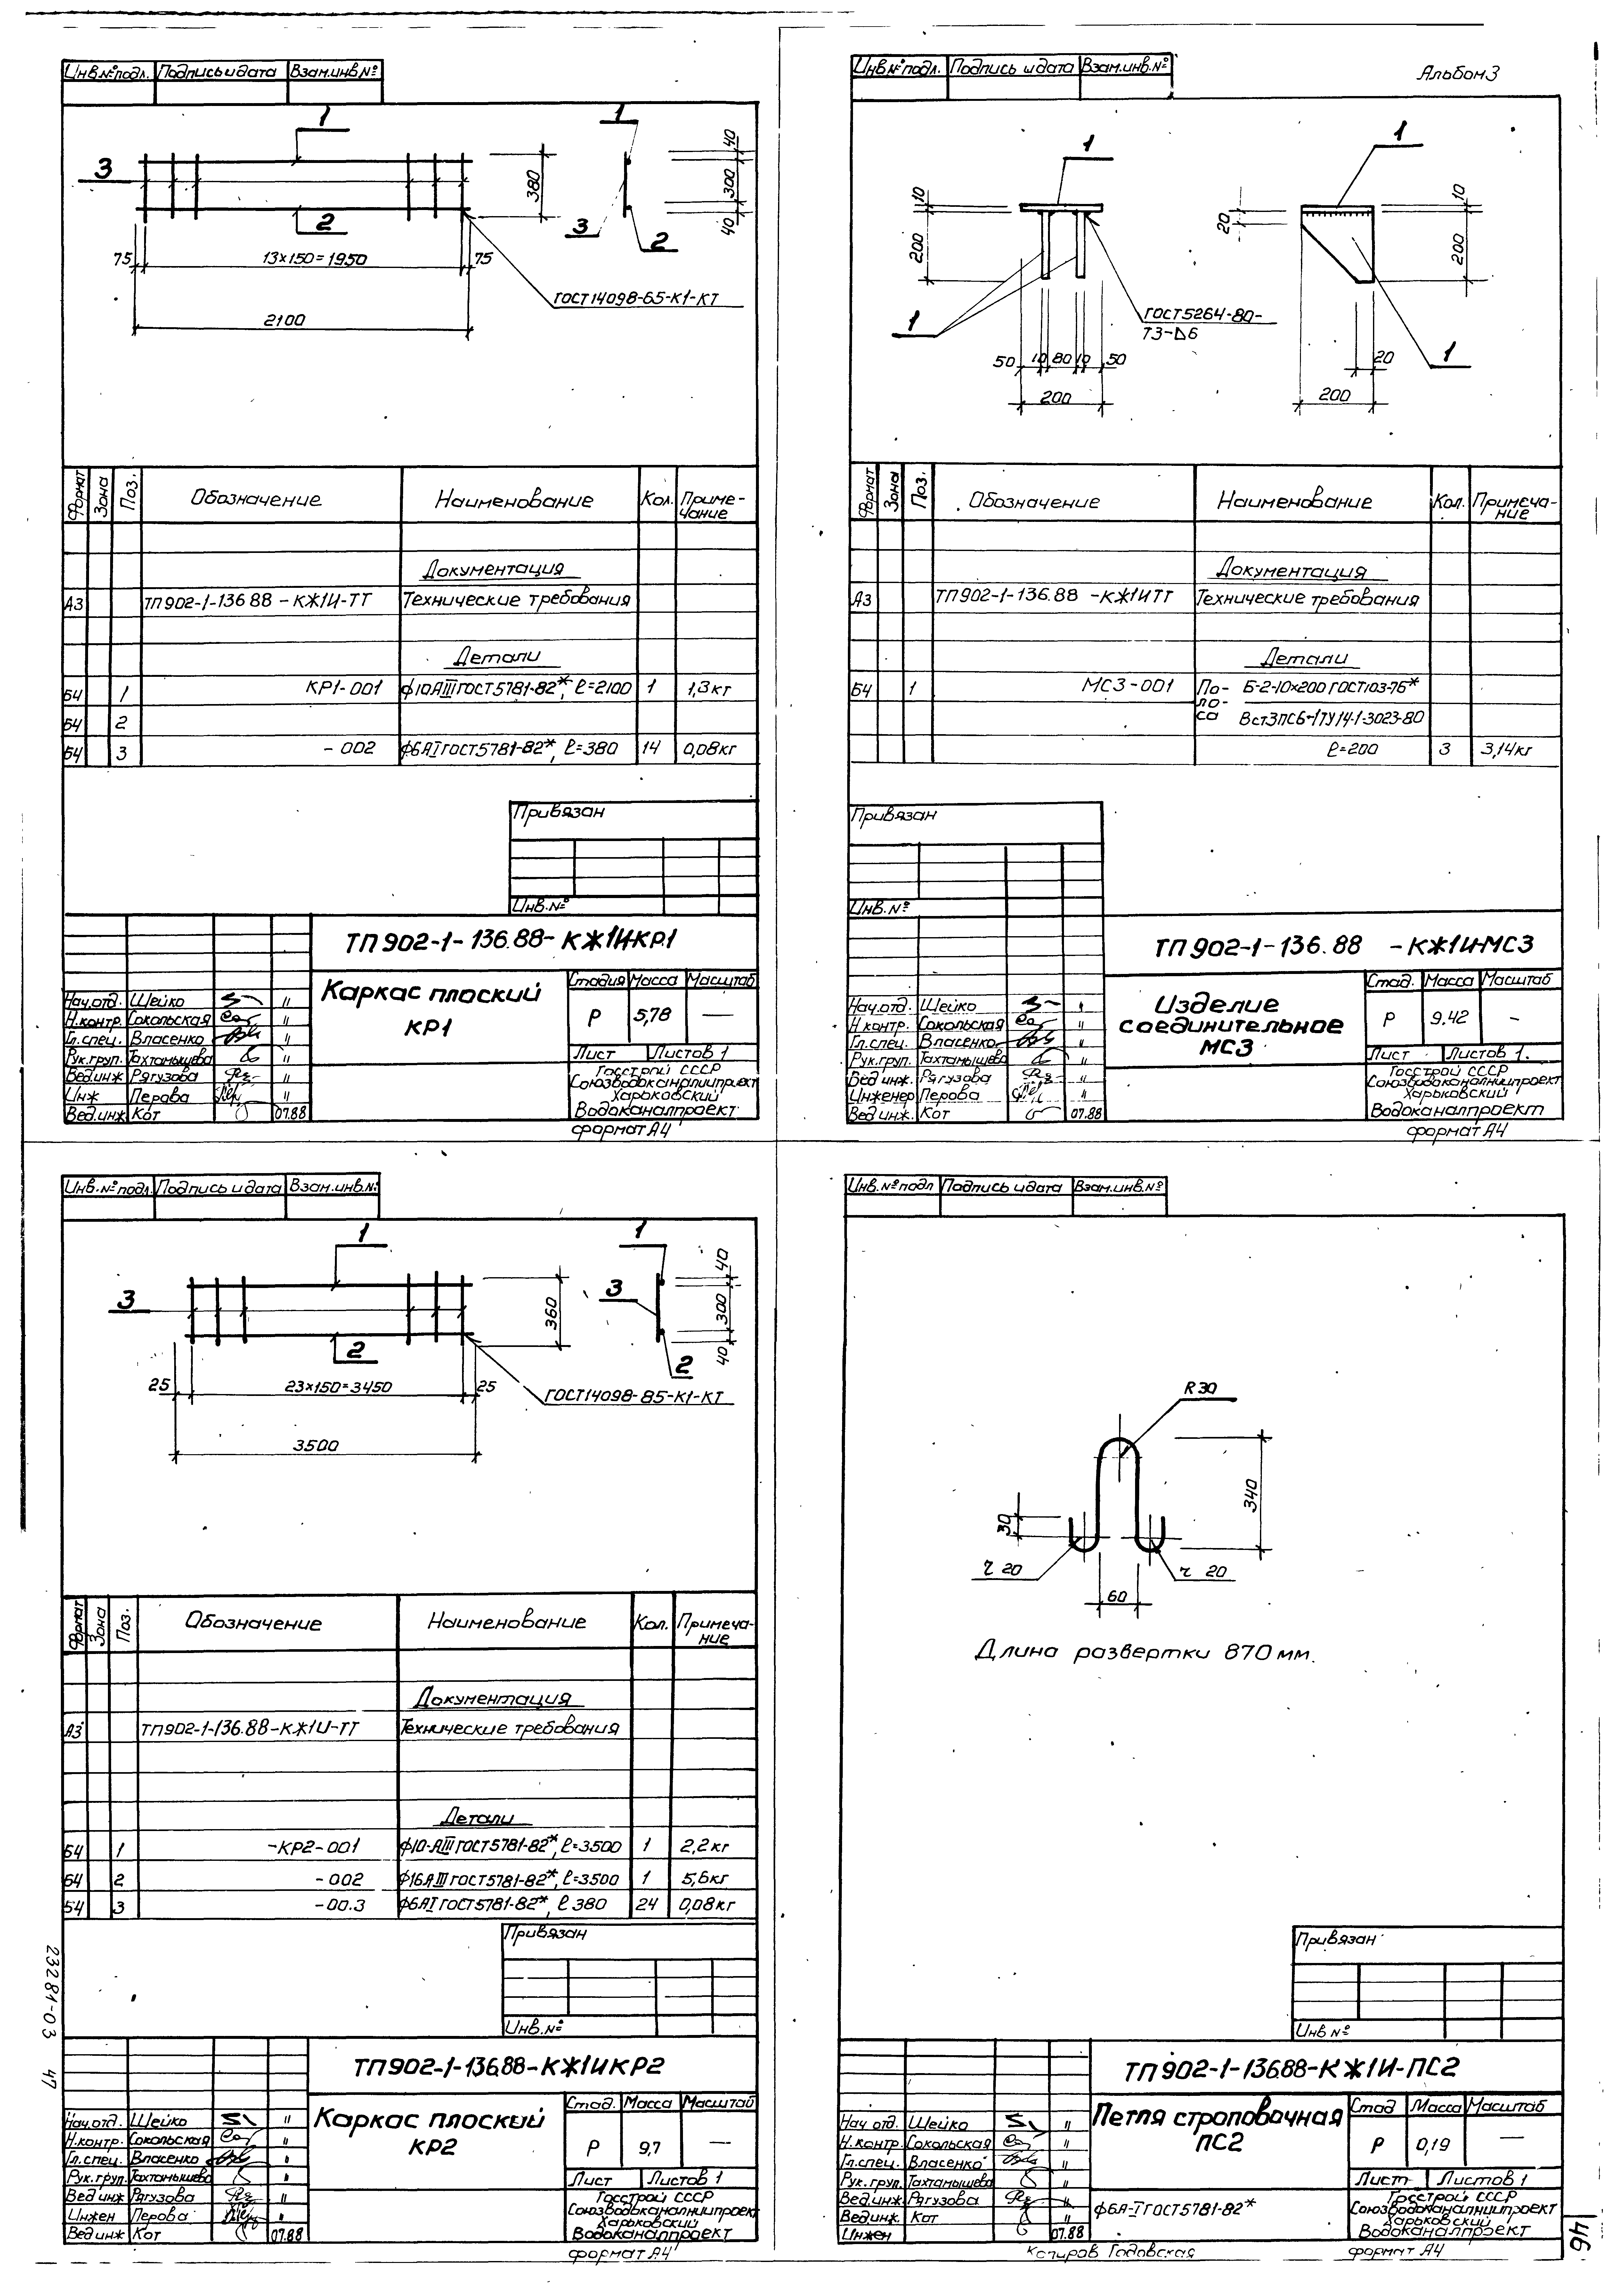 Инв.№подл. Подпись и дата Взам.инв.№
1
1
3
2
3
2
380
40
300
40
75
13×150=1950
75
2100
ГОСТ14098-65-К1-КТ
Формат Зона Поз. Обозначение Наименование Кол. Приме-
чание
Документация
А3 ТП902-1-136.88-КЖ1И-ТТ Технические требования
Детали
Б4 1 КР1-001 ф10АIII ГОСТ5781-82*, ℓ=2100 1 1,3кг
Б4 2
Б4 3 -002 ф6АI ГОСТ5781-82*, ℓ=380 14 0,08кг
Привязан
Инв.№
ТП902-1-136.88-КЖ1И-КР1
Каркас плоский
КР1
Стадия Масса Масштаб
Р 5,78 —
Лист Листов 1
Госстрой СССР
Союзводоканалниипроект
Харьковский
Водоканалпроект
Нач.отд. Шейко "
Н.контр. Сокольская "
Гл.спец. Власенко "
Рук.груп. Тахтамышева "
Вед.инж Рягузова "
Инж Перова "
Вед.инж Кот 07.88
формат А4
Альбом 3
Инв.№подл. Подпись и дата Взам.инв.№
1
1
1
1
10
200
50 10 80 10 50
200
ГОСТ5264-80-
Т3-⊿6
20
10
200
20
200
Формат Зона Поз. Обозначение Наименование Кол. Примеча-
ние
Документация
А3 ТП902-1-136.88-КЖ1И ТТ Технические требования
Детали
Б4 1 МС3-001 По- Б-2-10×200 ГОСТ103-76*
ло-
са ВСт3ПС6-1 ТУ14-1-3023-80
ℓ=200 3 3,14кг
Привязан
Инв.№
ТП902-1-136.88 -КЖ1И-МС3
Изделие
соединительное
МС3
Стад. Масса Масштаб
Р 9.42 –
Лист Листов 1.
Госстрой СССР
Союзводоканалниипроект
Харьковский
Водоканалпроект
Нач.отд. Шейко "
Н.контр. Сокольская "
Гл.спец. Власенко "
Рук.груп. Тахтамышева "
Вед.инж. Рягузова "
Инженер Перова "
Вед.инж. Кот 07.88
формат А4
Инв.№подл. Подпись и дата Взам.инв.№
1
1
3
3
2
2
360
40
300
40
25
23×150=3450
25
3500
ГОСТ14098-85-К1-КТ
Формат Зона Поз. Обозначение Наименование Кол. Примеча-
ние
Документация
А3 ТП902-1-136.88-КЖ1И-ТТ Технические требования
Детали
Б4 1 -КР2-001 ф10-АIII ГОСТ5781-82*, ℓ=3500 1 2,2кг
Б4 2 -002 ф16АIII ГОСТ5781-82*, ℓ=3500 1 5,6кг
Б4 3 -00.3 ф6АI ГОСТ5781-82*, ℓ 380 24 0,08кг
Привязан
Инв.№
ТП902-1-136.88-КЖ1ИКР2
Каркас плоский
КР2
Стад. Масса Масштаб
Р 9,7 —
Лист Листов 1
Госстрой СССР
Союзводоканалниипроект
Харьковский
Водоканалпроект
Нач.отд. Шейко "
Н.контр. Сокольская "
Гл.спец. Власенко "
Рук.груп. Тахтамышева "
Вед.инж Рягузова "
Инжен Перова "
Вед.инж Кот 07.88
формат А4
23281-03 47
Инв.№подл Подпись и дата Взам.инв.№
R 30
340
30
r 20
r 20
60
Длина развертки 870мм.
Привязан
Инв №
ТП902-1-136.88-КЖ1И-ПС2
Петля строповочная
ПС2
Стад Масса Масштаб
Р 0,19 —
Лист Листов 1
ф6А-I ГОСТ5781-82*
Госстрой СССР
Союзводоканалниипроект
Харьковский
Водоканалпроект
Нач отд. Шейко "
Н.контр. Сокольская "
Гл.спец. Власенко "
Рук.груп. Тахтамышева "
Вед.инж. Рягузова "
Вед.инж. Кот "
Инжен 07.88
Копиров Годовская
формат А4
46